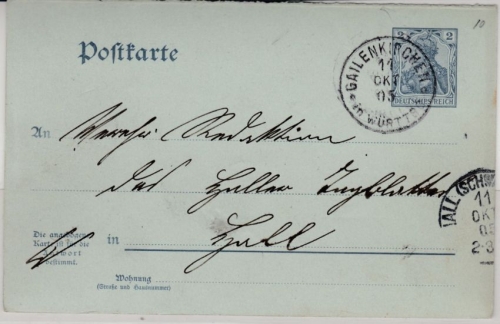 10
Postkarte
2 2
DEUTSCHES REICH
GAILENKIRCHEN
11
OKT
05
in WÜRTTB
An
Verehr. Redaktion
des Haller Tagblattes
HALL (SCHW
11
OKT
05
2-3
Die angebogene
Karte ist für die
Antwort
bestimmt.
in Hall
Wohnung
(Straße und Hausnummer)